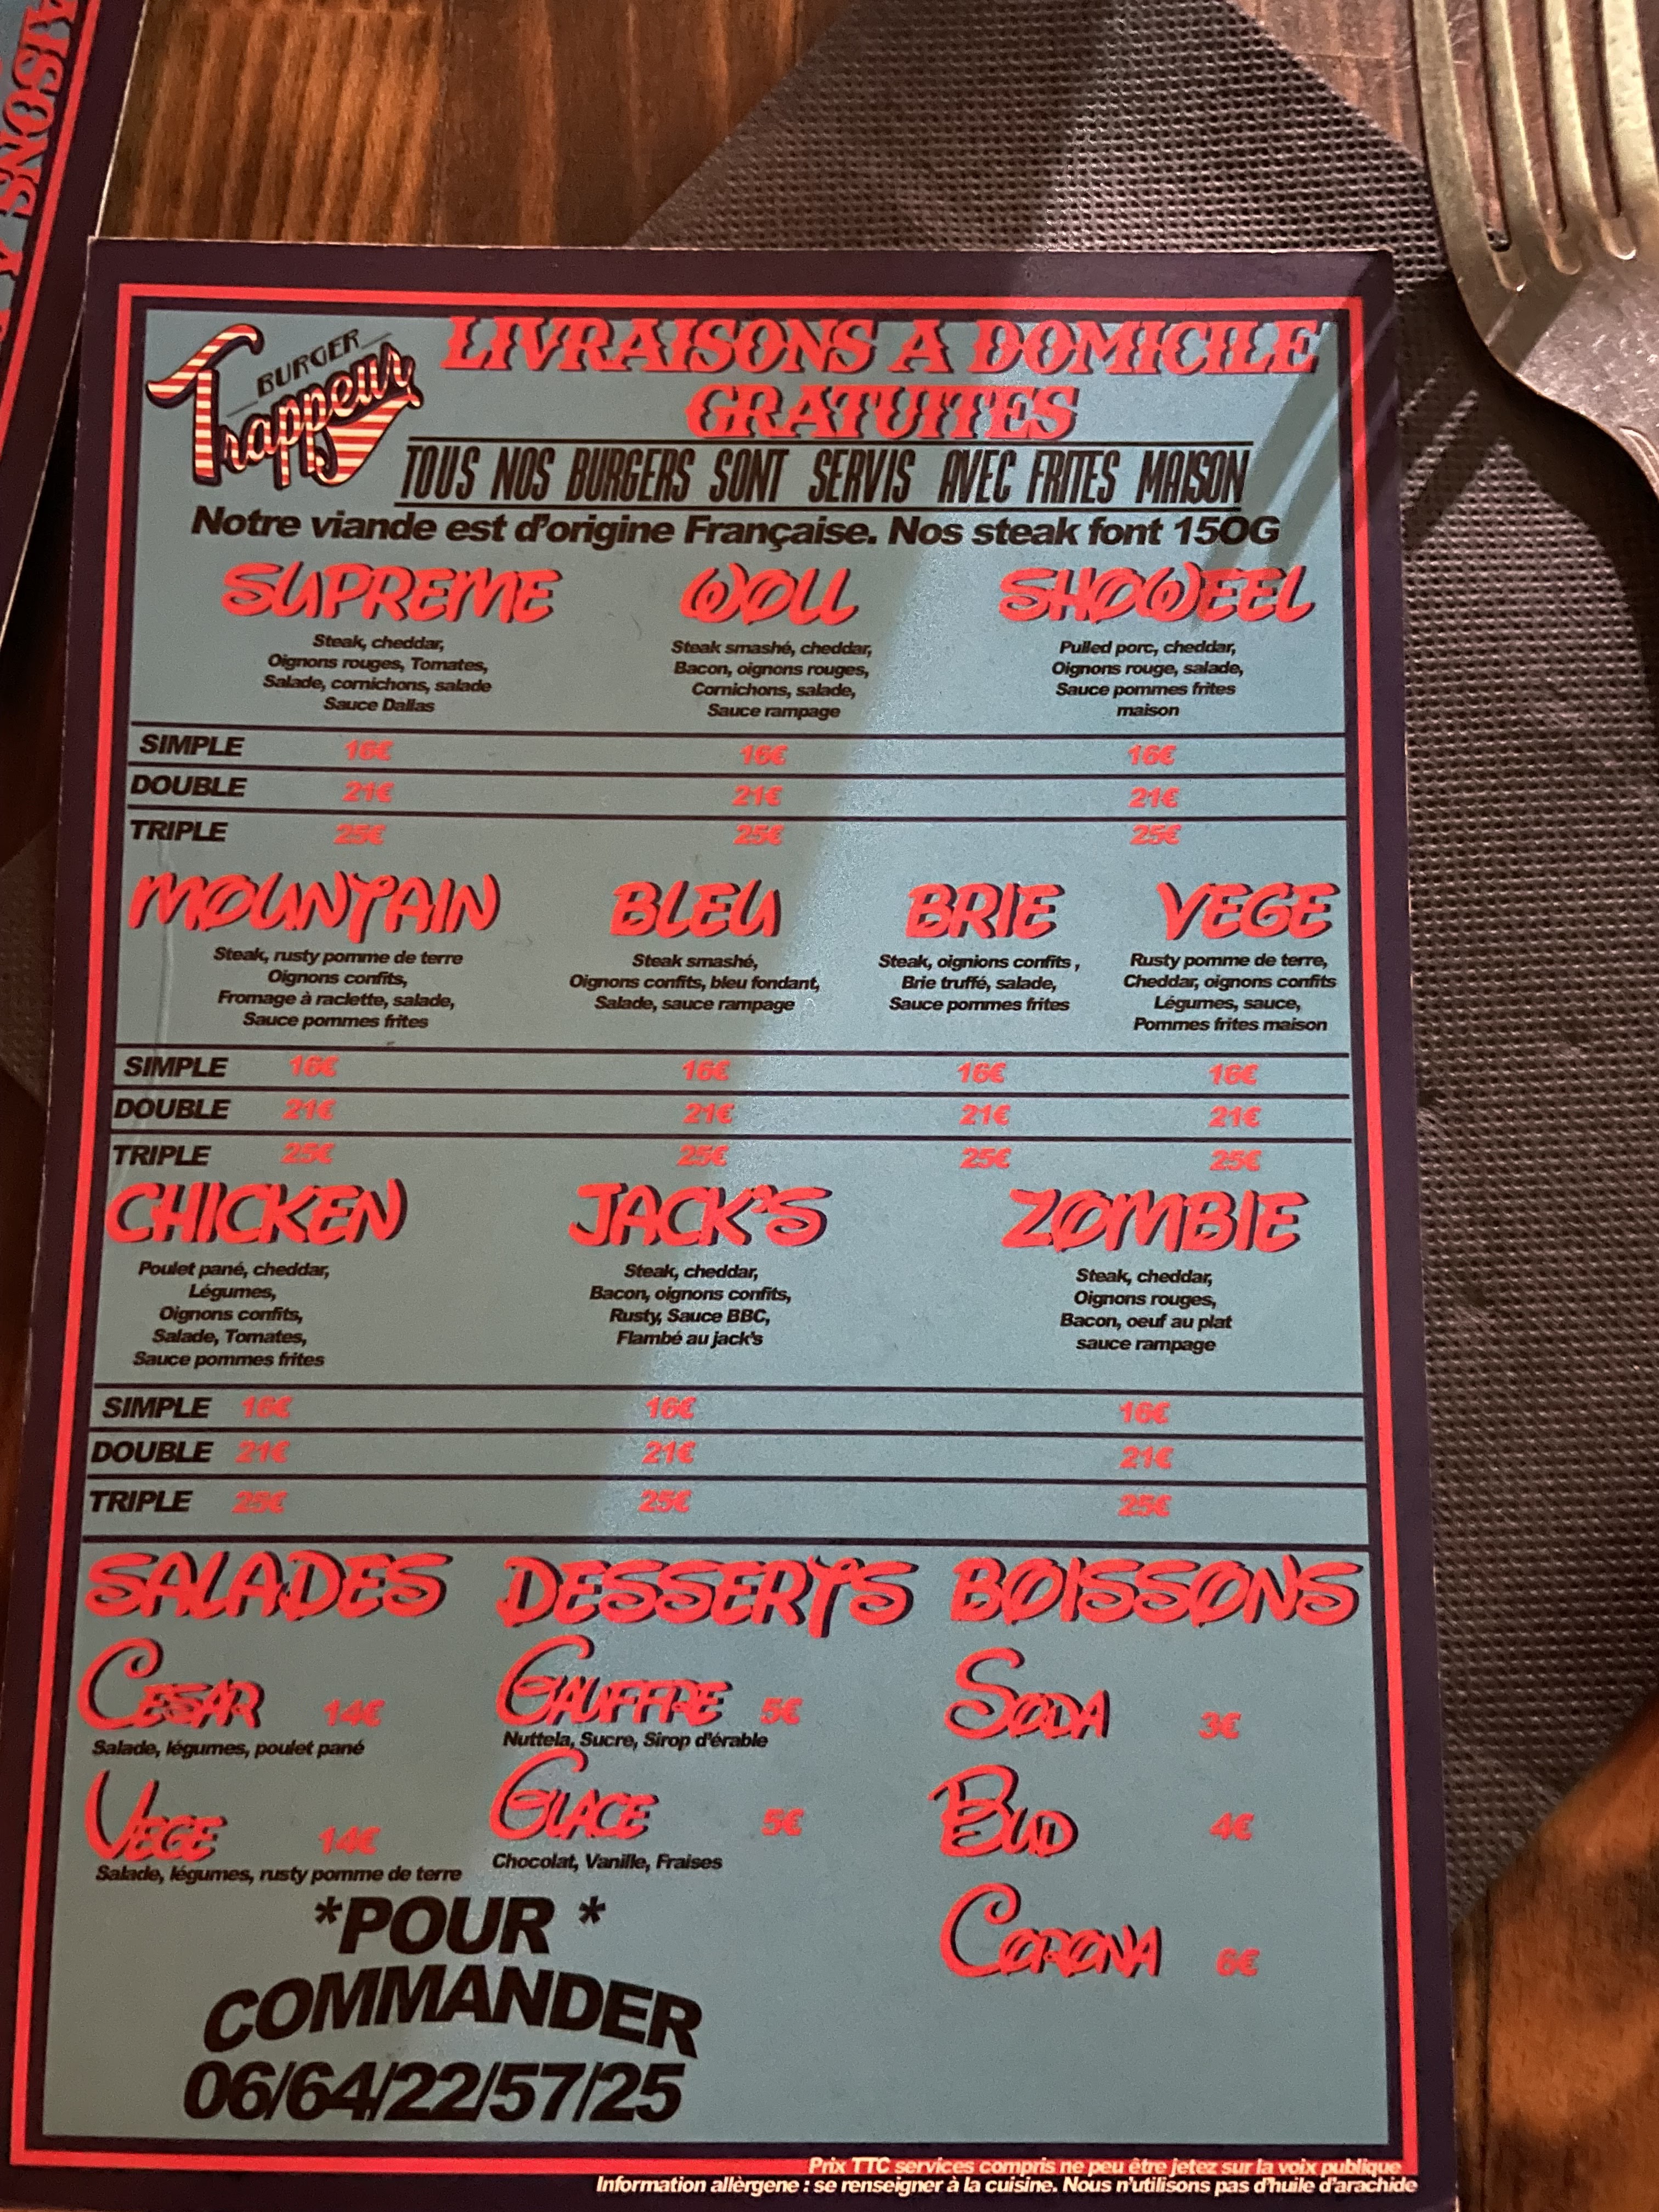 Y SNOSIV
BURGER
Trappeur
LIVRAISONS A DOMICILE
GRATUITES
TOUS NOS BURGERS SONT SERVIS AVEC FRITES MAISON
Notre viande est d'origine Française. Nos steak font 150G
SUPREME
Steak, cheddar,
Oignons rouges, Tomates,
Salade, cornichons, salade
Sauce Dallas
WOLL
Steak smashé, cheddar,
Bacon, oignons rouges,
Cornichons, salade,
Sauce rampage
SHOWEEL
Pulled porc, cheddar,
Oignons rouge, salade,
Sauce pommes frites
maison
SIMPLE 16€ 16€ 16€
DOUBLE 21€ 21€ 21€
TRIPLE 25€ 25€ 25€
MOUNTAIN
Steak, rusty pomme de terre
Oignons confits,
Fromage à raclette, salade,
Sauce pommes frites
BLEU
Steak smashé,
Oignons confits, bleu fondant,
Salade, sauce rampage
BRIE
Steak, oignions confits ,
Brie truffé, salade,
Sauce pommes frites
VEGE
Rusty pomme de terre,
Cheddar, oignons confits
Légumes, sauce,
Pommes frites maison
SIMPLE 16€ 16€ 16€ 16€
DOUBLE 21€ 21€ 21€ 21€
TRIPLE 25€ 25€ 25€ 25€
CHICKEN
Poulet pané, cheddar,
Légumes,
Oignons confits,
Salade, Tomates,
Sauce pommes frites
JACK'S
Steak, cheddar,
Bacon, oignons confits,
Rusty, Sauce BBC,
Flambé au jack's
ZOMBIE
Steak, cheddar,
Oignons rouges,
Bacon, oeuf au plat
sauce rampage
SIMPLE 16€ 16€ 16€
DOUBLE 21€ 21€ 21€
TRIPLE 25€ 25€ 25€
SALADES
CESAR 14€
Salade, légumes, poulet pané
VEGE 14€
Salade, légumes, rusty pomme de terre
DESSERTS
GAUFFRE 5€
Nuttela, Sucre, Sirop d'érable
GLACE 5€
Chocolat, Vanille, Fraises
BOISSONS
SODA 3€
BUD 4€
CORONA 6€
*POUR *
COMMANDER
06/64/22/57/25
Prix TTC services compris ne peu être jetez sur la voix publique
Information allèrgene : se renseigner à la cuisine. Nous n'utilisons pas d'huile d'arachide